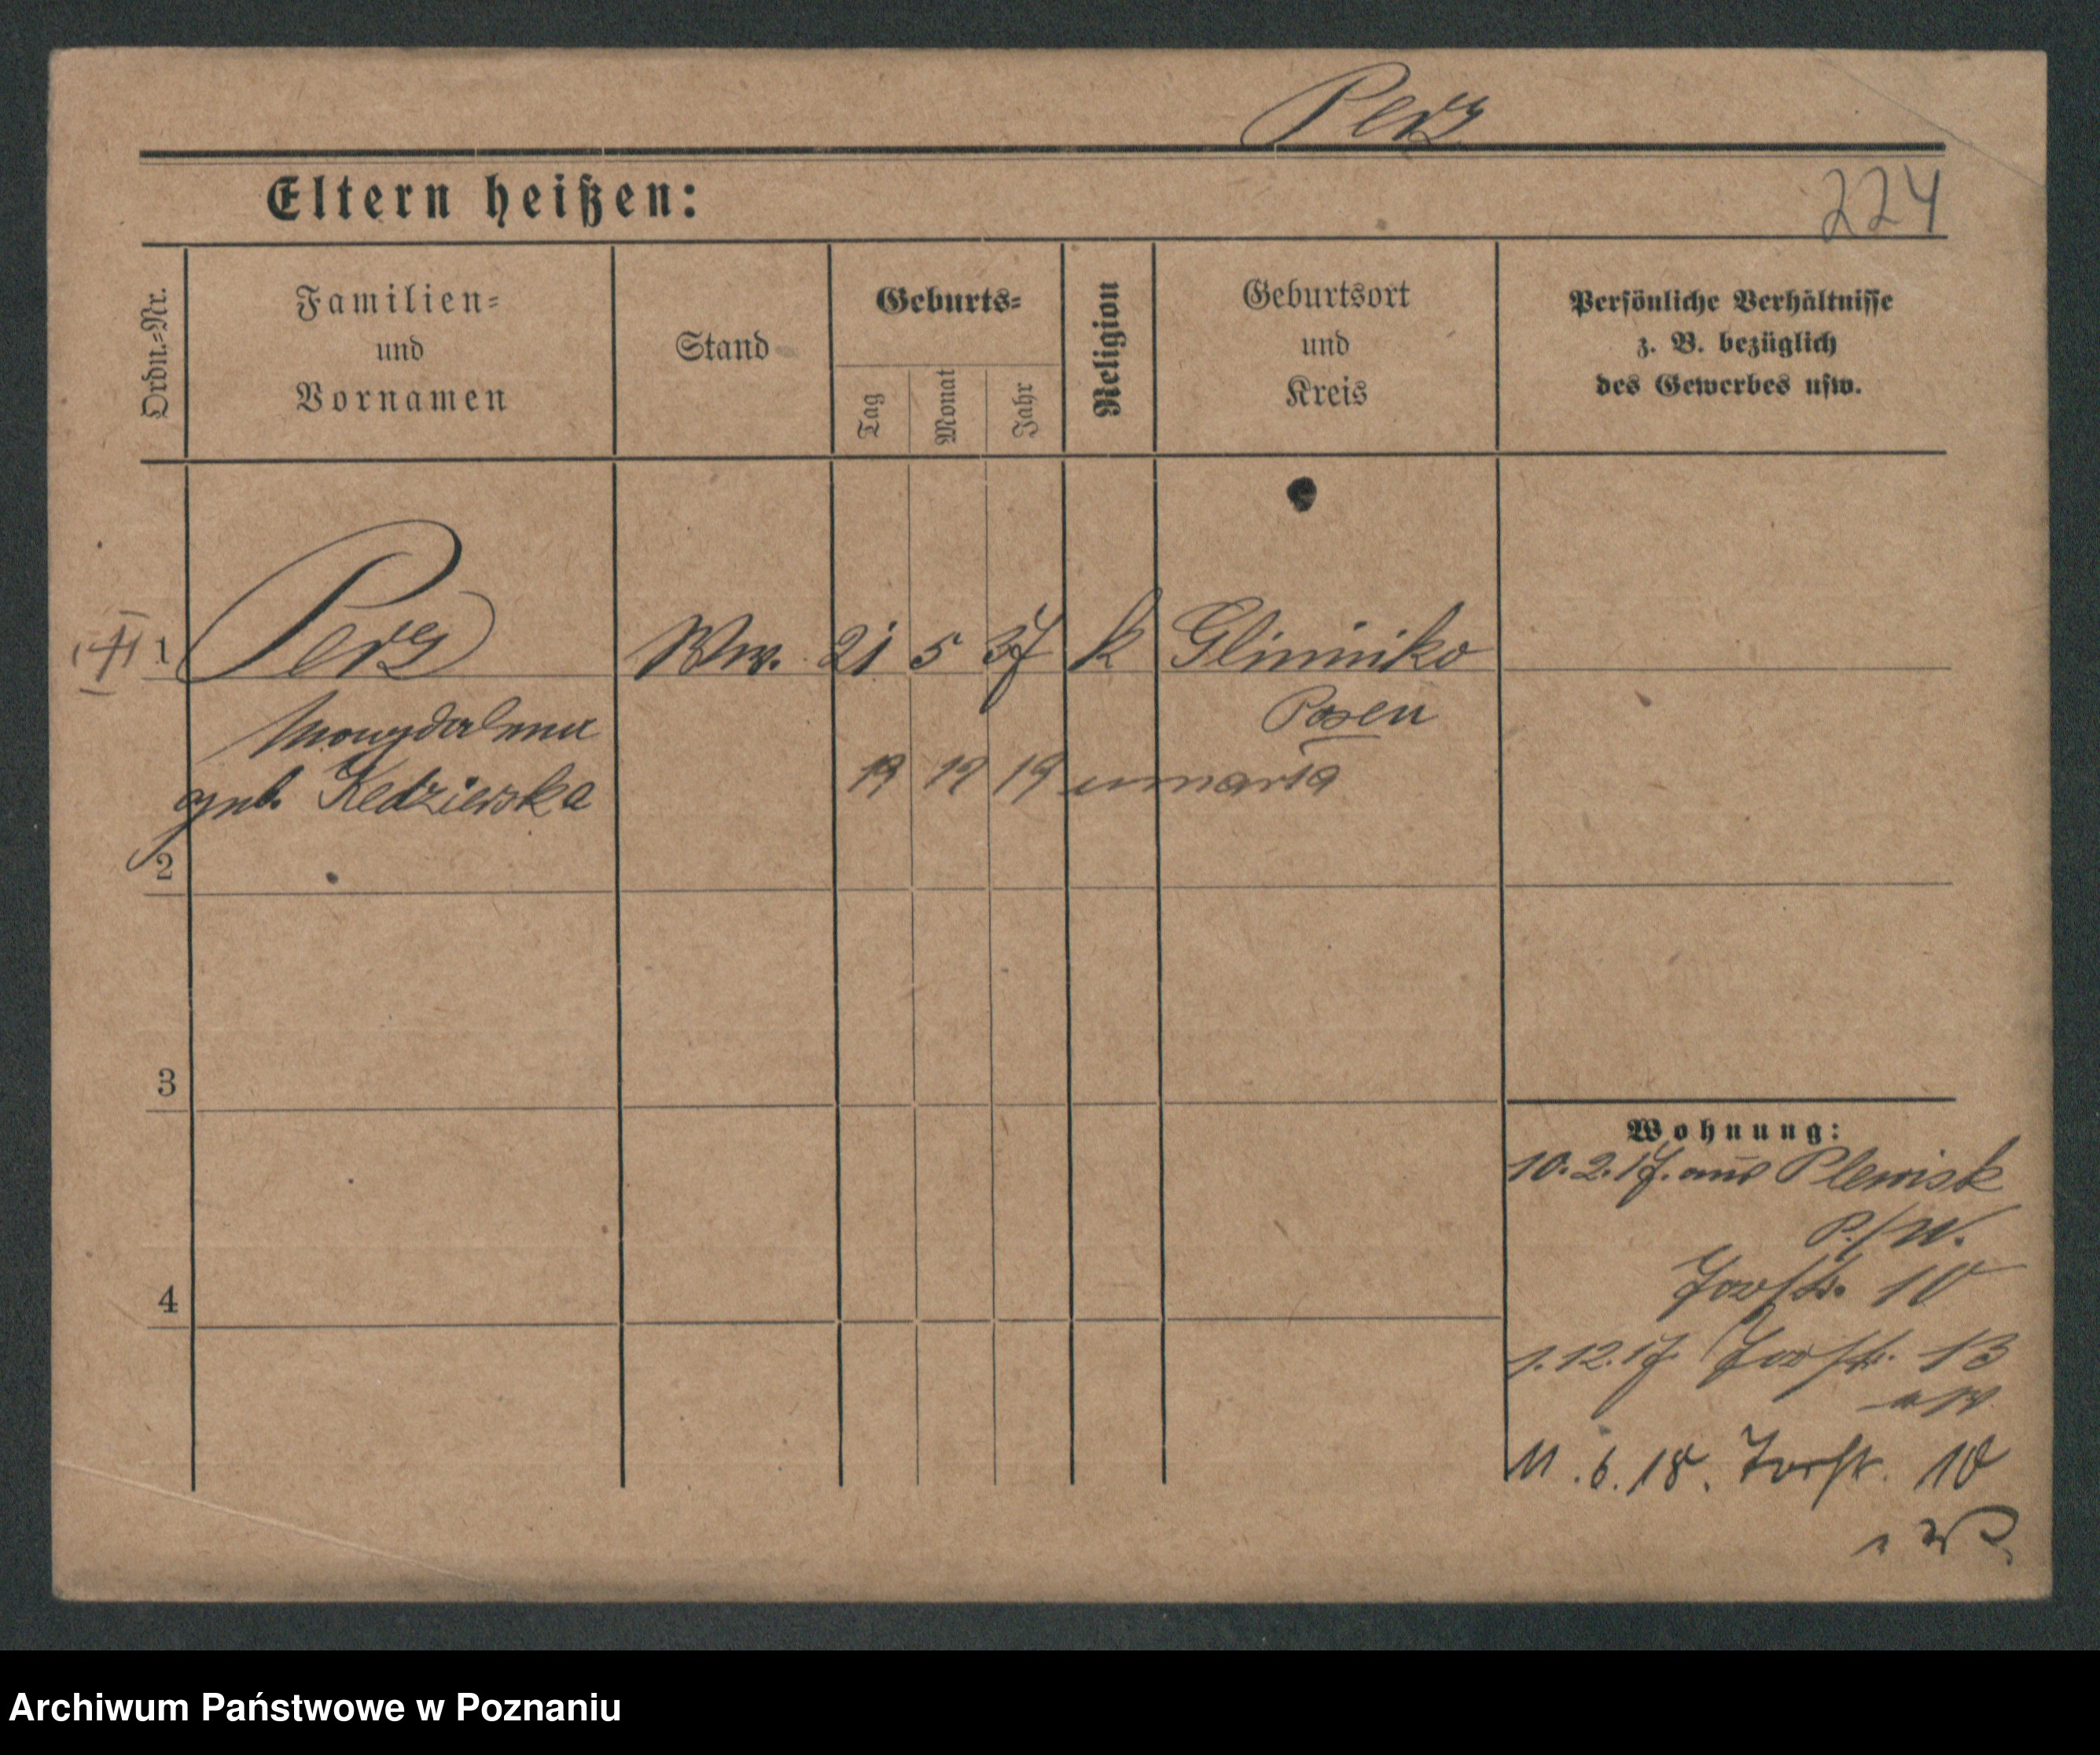 Perz
Eltern heißen:
224
Ordn.=Nr.
Familien=
und
Vornamen
Stand
Geburts=
Tag
Monat
Jahr
Religion
Geburtsort
und
Kreis
Persönliche Verhältnisse
z. B. bezüglich
des Gewerbes usw.
1 Perz Ww. 21 5 37 k Glinniko
Magdalena Posen
geb. Kedzierska 19 12 19 umarła
2
3
4
Wohnung:
10.2.17. aus Plewisk
P./W.
10
1.12.17 13
11.6.18. 10
Archiwum Państwowe w Poznaniu